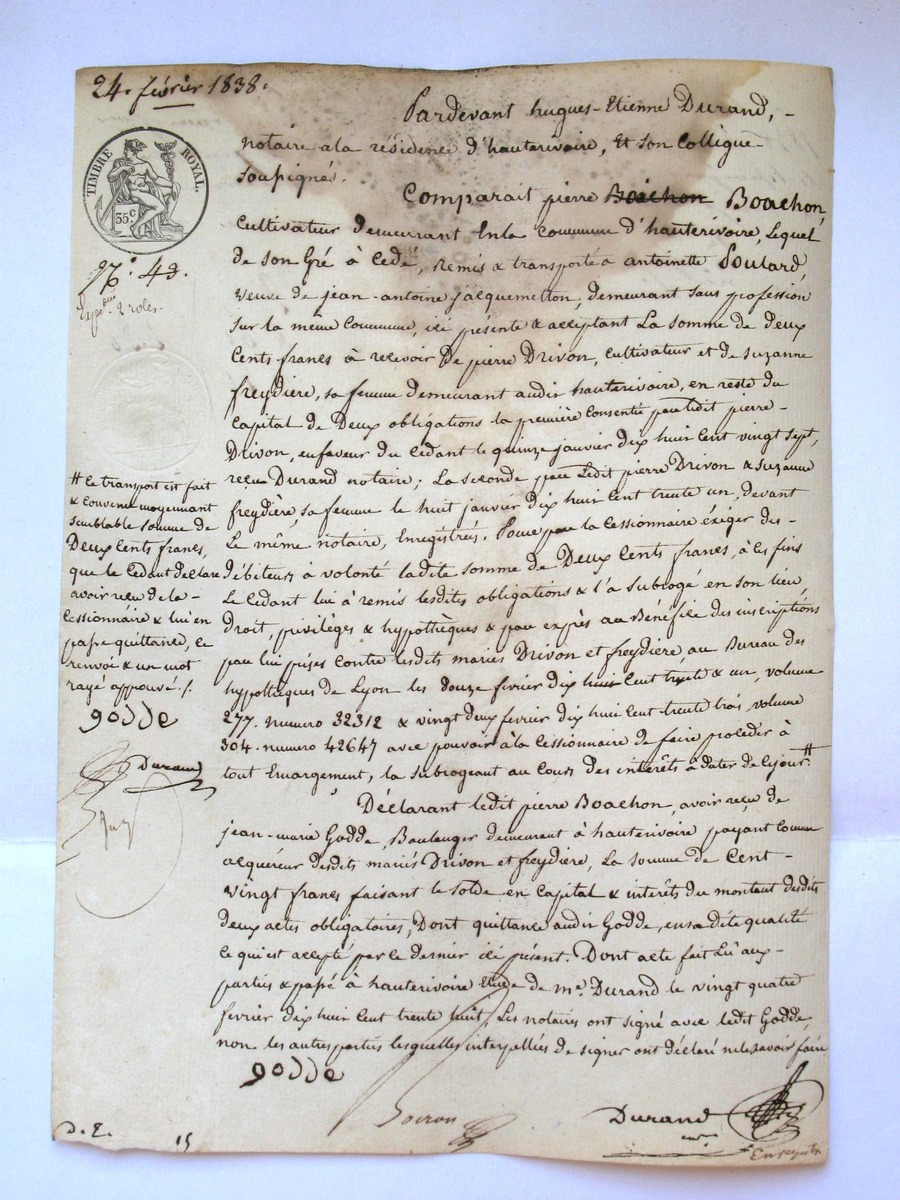 24. février 1838.
Pardevant hugues-Etienne Durand,-
notaire a la résidence d'hauterivoire, Et son Collègue
soussignés.
Comparait pierre Boachon Boachon,
TIMBRE ROYAL.
35 c
N°. 43.
2 roles.
Cultivateur demeurant En la Commune d'hauterivoire, Lequel
de son Gré à Cedé, Remis & transporté a antoinette Poulard,
veuve de jean-antoine jacquemetton, demeurant sans profession
sur la même Commune, ici présente & acceptant La somme de deux
Cents francs à recevoir De pierre Drivon, cultivateur et de suzanne
freydiere, sa femme demeurant audit hauterivoire, en reste du
Capital de Deux obligations la première Consentie par ledit pierre-
Drivon, en faveur du Cédant le quinze janvier dix huit Cent vingt sept,
reçu Durand notaire; La seconde par Ledit pierre Drivon & Suzanne
freydière, sa femme le huit janvier dix huit Cent trente un, devant
Le même notaire, Enregistrées. Pour par la Cessionnaire éxiger des-
débiteurs à volonté ladite somme de Deux Cents francs, à Ces fins
Le Cédant lui à remis lesdites obligations & l'a subrogé en son lieu
Droit, privilèges & hypothèques & par exprès au Bénéfice des inscriptions
par lui prises Contre lesdits mariés Drivon et freydiere au Bureau des
hypothèques de Lyon les douze fevrier dix huit Cent trente & un, volume
277. numero 32312 & vingt deux fevrier dix huit Cent trente trois, volume
304. numero 42647 avec pouvoir à la Cessionnaire de faire proceder à
tout Emargement, la subrogeant au Cours des intérêts à dater de Cejour #
# Ce transport est fait
& Convenu moyennant
semblable somme de
Deux Cents francs,
que le Cedant declare
avoir reçu de la-
Cessionnaire & lui en
passe quittance, Ce
renvoi & un mot
rayé approuvé./.
godde
Durand
Déclarant ledit pierre Boachon, avoir reçu de
jean-marie Godde, Boulanger demeurant à hauterivoire payant Comme
acquéreur desdits mariés Drivon et freydière, La somme de Cent-
vingt francs faisant le solde en Capital & intérêts du montant desdits
deux actes obligatoires, Dont quittance audit Godde, en sa dite qualité
Ce qui est accepté par Ce dernier ici présent. Dont acte fait Lû aux-
parties & passé à hauterivoire Etude de me. Durand le vingt quatre
fevrier dix huit Cent trente huit, Les notaires ont signé avec ledit Godde,
non les autres parties lesquelles interpellées de signer ont déclaré ne le savoir faire
godde
Durand
D. E. 15